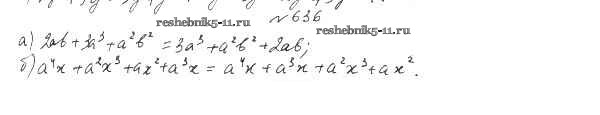 № 636
reshebnik5-11.ru
reshebnik5-11.ru
а) 2ab + 3a³ + a²b² = 3a³ + a²b² + 2ab;
б) a⁴x + a²x³ + ax² + a³x = a⁴x + a³x + a²x³ + ax².